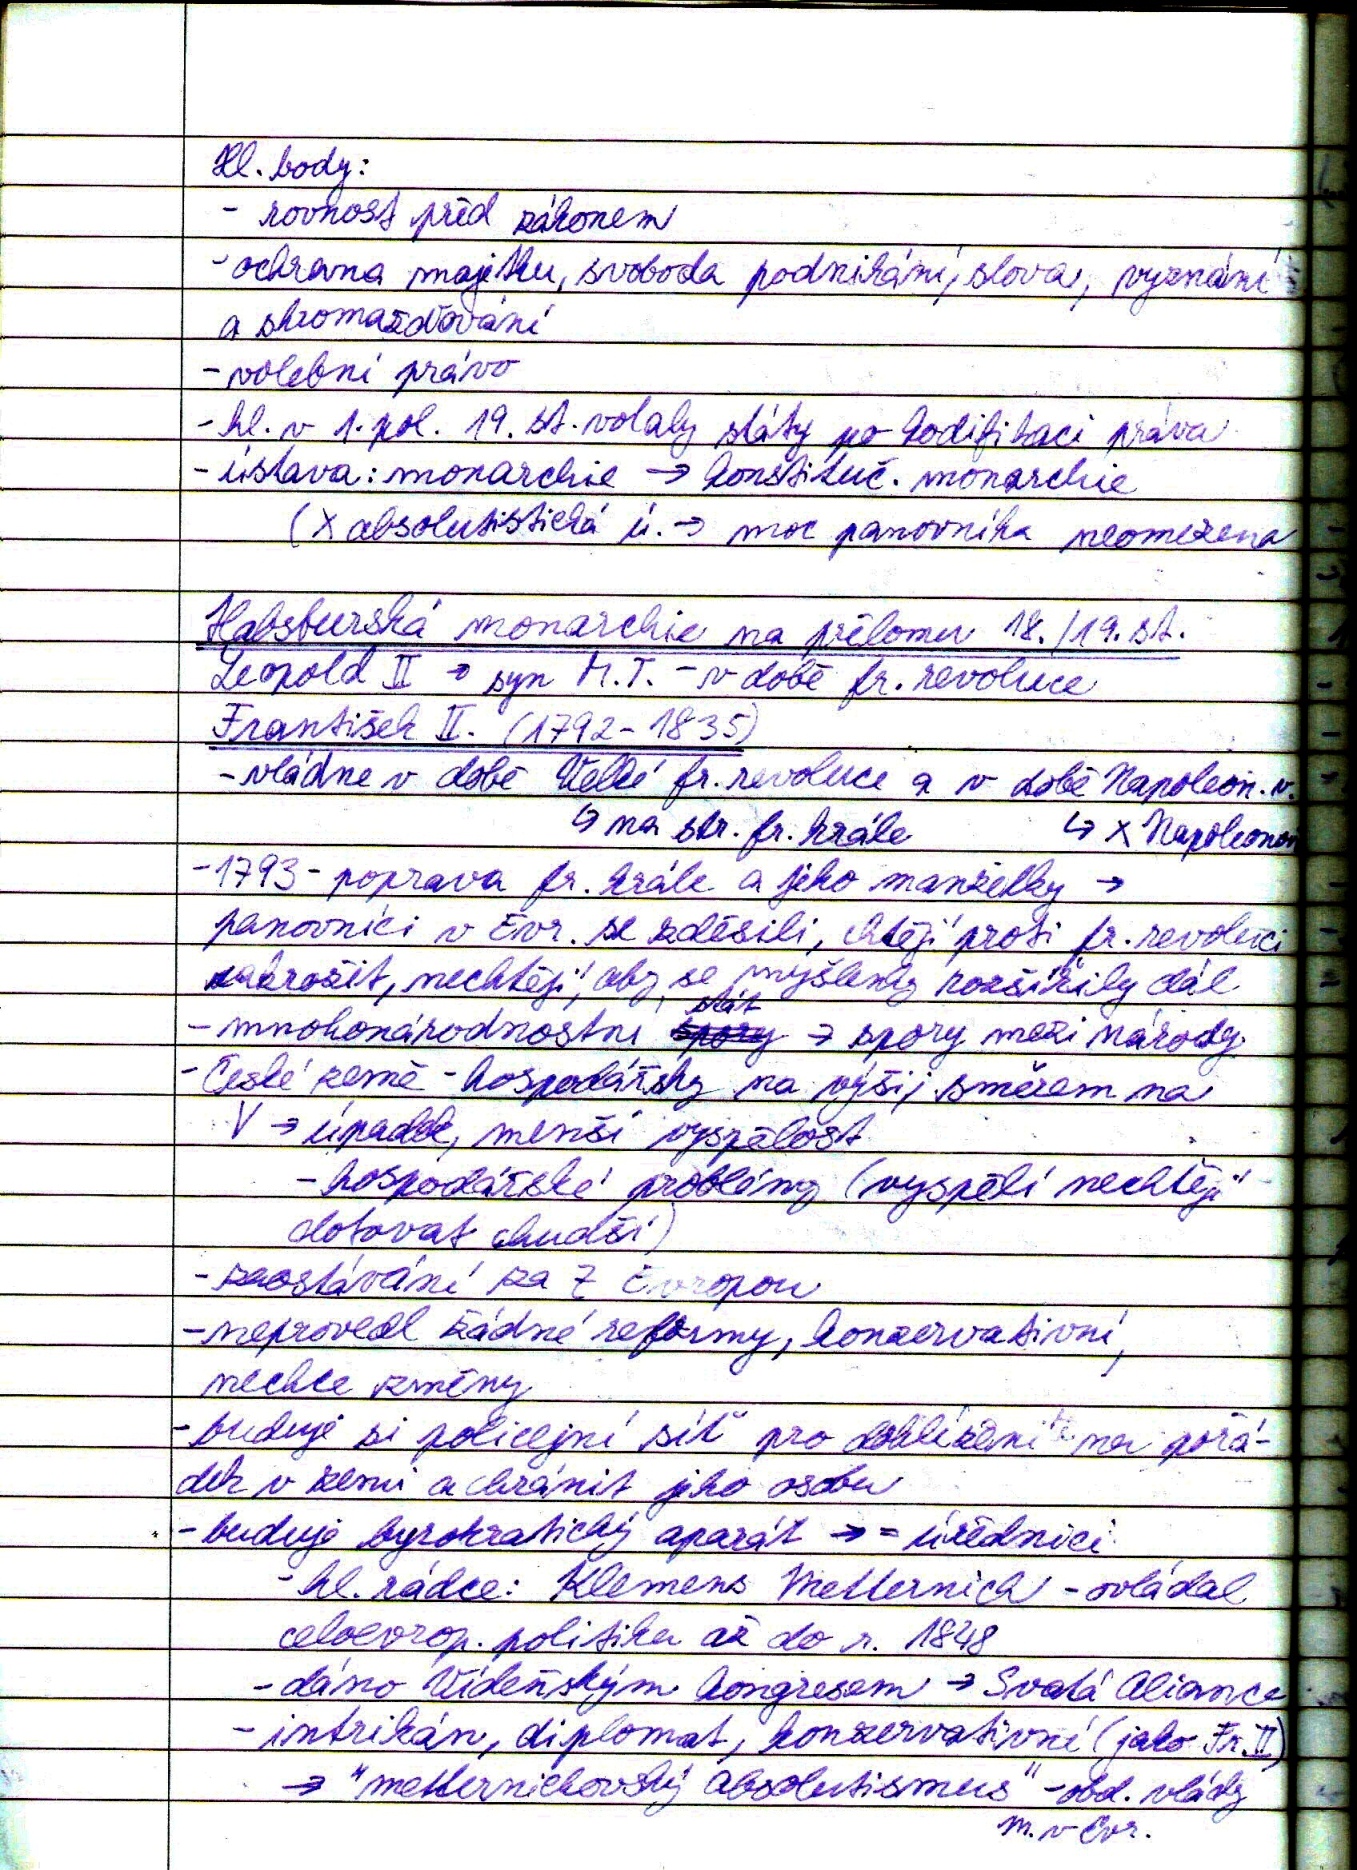 Hl. body:
- rovnost před zákonem
- ochrana majetku, svoboda podnikání, slova, vyznání
a shromažďování
- volební právo
- hl. v 1. pol. 19. st. volaly státy po kodifikaci práva
- ústava: monarchie → konstituč. monarchie
(X absolutistická ú. → moc panovníka neomezena
Habsburská monarchie na přelomu 18./19. st.
Leopold II → syn M.T. - v době fr. revoluce
František II. (1792-1835)
- vládne v době Velké fr. revoluce a v době Napoleon. v.
↳ na str. fr. krále ↳ X Napoleonovi
- 1793 - poprava fr. krále a jeho manželky →
panovníci v Evr. se zděsili, chtějí proti fr. revoluci
zakročit, nechtějí, aby se myšlenky rozšířily dál
- mnohonárodnostní stát → spory mezi národy
- České země - hospodářsky na výši, směrem na
V → úpadek, menší vyspělost
- hospodářské problémy (vyspělí nechtějí
dotovat chudší)
- zaostávání za Z Evropou
- neprovedl žádné reformy, konzervativní,
nechce změny
- buduje si policejní síť pro dohlížení na pořá-
dek v zemi a chránit jeho osobu
- buduje byrokratický aparát → = úředníci
- hl. rádce: Klemens Metternich - ovládal
celoevrop. politiku až do r. 1848
- dáno Vídeňským kongresem → Svatá Aliance
- intrikán, diplomat, konzervativní (jako Fr. II)
→ "metternichovský absolutismus" - obd. vlády
M. v Evr.